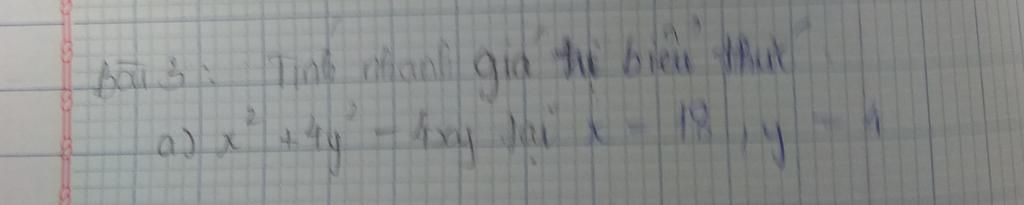 Bài 3: Tính nhanh giá trị biểu thức
a) x² + 4y² - 4xy tại x = 18, y = 4